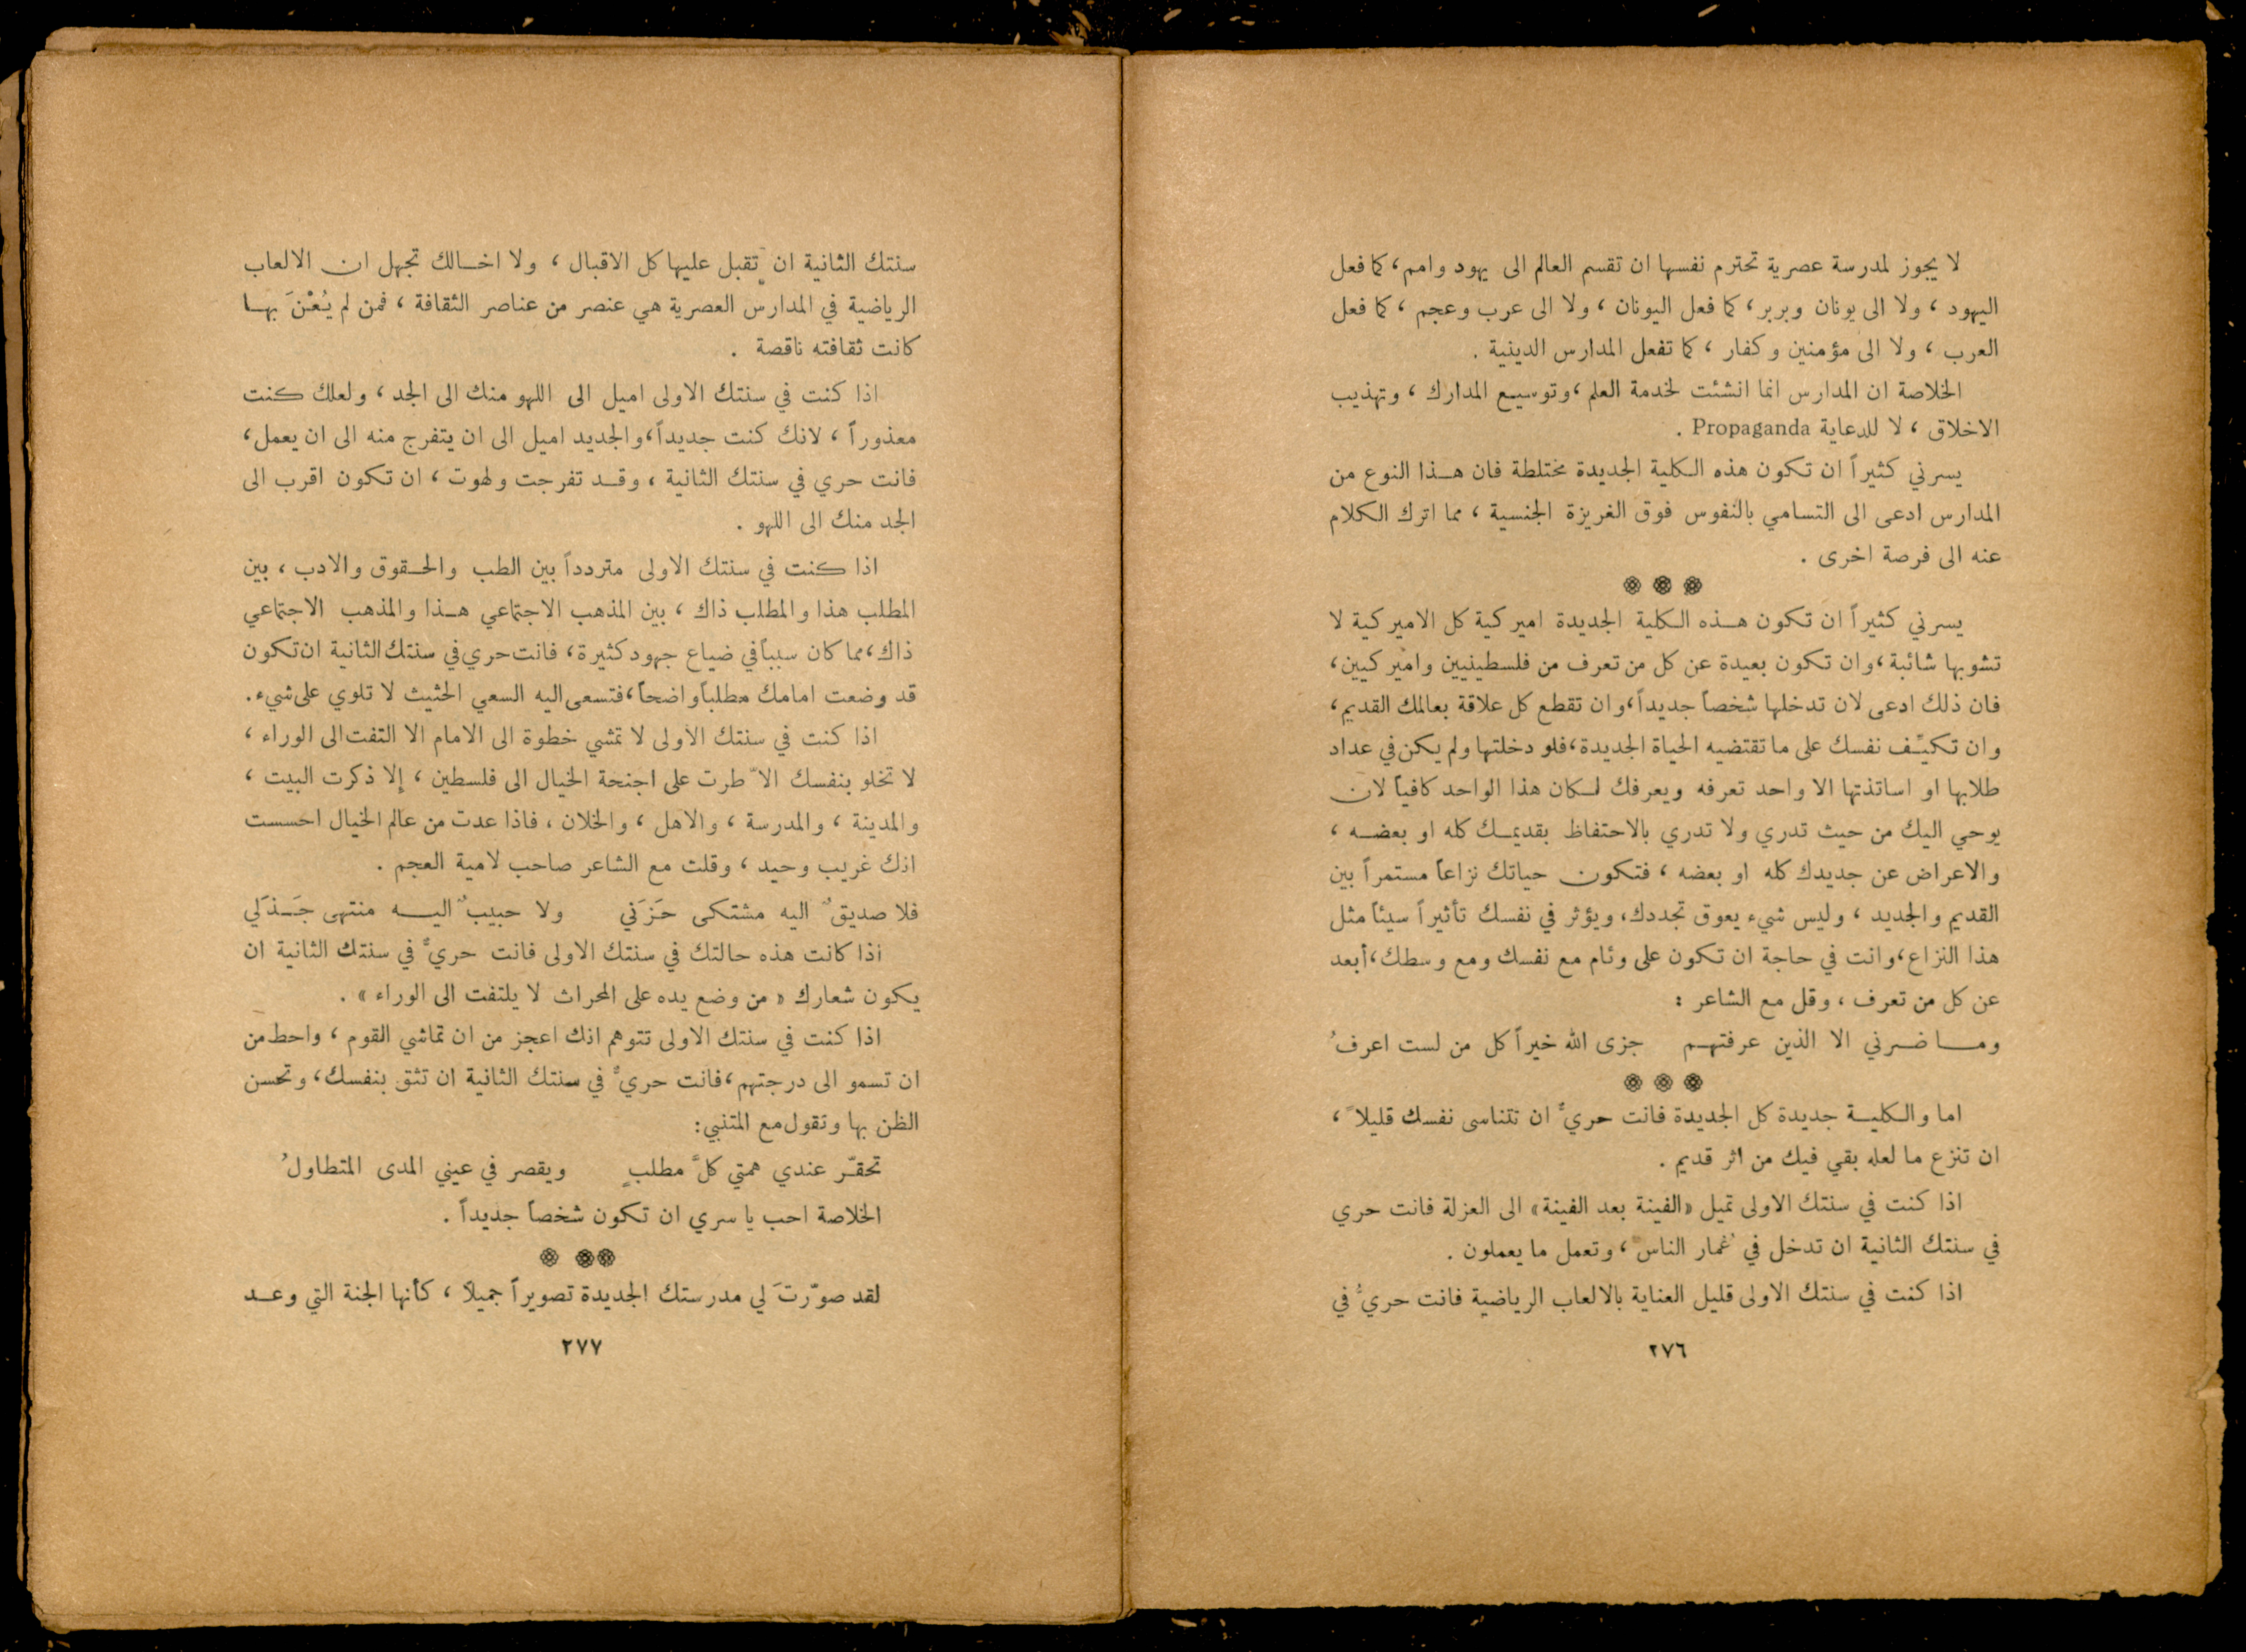 لا يجوز لمدرسة عصرية تحترم نفسها ان تقسم العالم الى يهود وامم، كما فعل
اليهود ، ولا الى يونان وبربر، كما فعل اليونان ، ولا الى عرب وعجم ، كما فعل
العرب ، ولا الى مؤمنين وكفار ، كما تفعل المدارس الدينية .
الخلاصة ان المدارس انما انشئت لخدمة العلم ،وتوسيع المدارك ، وتهذيب
الاخلاق ، لا للدعاية Propaganda .
يسرني كثيراً ان تكون هذه الكلية الجديدة مختلطة فان هذا النوع من
المدارس ادعى الى التسامي بالنفوس فوق الغريزة الجنسية ، مما اترك الكلام
عنه الى فرصة اخرى .
يسرني كثيراً ان تكون هذه الكلية الجديدة اميركية كل الاميركية لا
تشوبها شائبة ،وان تكون بعيدة عن كل من تعرف من فلسطينيين واميركيين،
فان ذلك ادعى لان تدخلها شخصاً جديداً،وان تقطع كل علاقة بعالمك القديم،
وان تكيّف نفسك على ما تقتضيه الحياة الجديدة،فلو دخلتها ولم يكن في عداد
طلابها او اساتذتها الا واحد تعرفه ويعرفك لكان هذا الواحد كافياً لان
يوحي اليك من حيث تدري ولا تدري بالاحتفاظ بقديمك كله او بعضه ،
والاعراض عن جديدك كله او بعضه ، فتكون حياتك نزاعاً مستمراً بين
القديم والجديد ، وليس شيء يعوق تجددك، ويؤثر في نفسك تأثيراً سيئاً مثل
هذا النزاع،وانت في حاجة ان تكون على وئام مع نفسك ومع وسطك،أبعد
عن كل من تعرف ، وقل مع الشاعر :
وما ضرني الا الذين عرفتهم جزى الله خيراً كل من لست اعرفُ
اما والكلية جديدة كل الجديدة فانت حريٌّ ان تتناسى نفسك قليلاً ،
ان تنزع ما لعله بقي فيك من اثر قديم .
اذا كنت في سنتك الاولى تميل «الفينة بعد الفينة» الى العزلة فانت حري
في سنتك الثانية ان تدخل في غُمار الناس ، وتعمل ما يعملون .
اذا كنت في سنتك الاولى قليل العناية بالالعاب الرياضية فانت حريٌّ في
٢٧٦
سنتك الثانية ان تقبل عليها كل الاقبال ، ولا اخالك تجهل ان الالعاب
الرياضية في المدارس العصرية هي عنصر من عناصر الثقافة ، فمن لم يُعْنَ بها
كانت ثقافته ناقصة .
اذا كنت في سنتك الاولى اميل الى اللهو منك الى الجد ، ولعلك كنت
معذوراً ، لانك كنت جديداً،والجديد اميل الى ان يتفرج منه الى ان يعمل،
فانت حري في سنتك الثانية ، وقد تفرجت ولهوت ، ان تكون اقرب الى
الجد منك الى اللهو .
اذا كنت في سنتك الاولى متردداً بين الطب والحقوق والادب ، بين
المطلب هذا والمطلب ذاك ، بين المذهب الاجتماعي هذا والمذهب الاجتماعي
ذاك،مما كان سبباً في ضياع جهود كثيرة، فانت حري في سنتك الثانية ان تكون
قد وضعت امامك مطلباً واضحاً،فتسعى اليه السعي الحثيث لا تلوي على شيء.
اذا كنت في سنتك الأولى لا تمشي خطوة الى الامام الا التفت الى الوراء ،
لا تخلو بنفسك الاّ طرت على اجنحة الخيال الى فلسطين ، إلا ذكرت البيت ،
والمدينة ، والمدرسة ، والاهل ، والخلان ، فاذا عدت من عالم الخيال احسست
انك غريب وحيد ، وقلت مع الشاعر صاحب لامية العجم .
فلا صديقٌ اليه مشتكى حَزَني ولا حبيبٌ اليه منتهى جَذَلي
اذا كانت هذه حالتك في سنتك الاولى فانت حريٌّ في سنتك الثانية ان
يكون شعارك « من وضع يده على المحراث لا يلتفت الى الوراء » .
اذا كنت في سنتك الاولى تتوهم انك اعجز من ان تماشي القوم ، واحط من
ان تسمو الى درجتهم،فانت حريٌّ في سنتك الثانية ان تثق بنفسك، وتحسن
الظن بها وتقول مع المتنبي:
تحقّر عندي همتي كلَّ مطلبٍ ويقصر في عيني المدى المتطاولُ
الخلاصة احب يا سري ان تكون شخصاً جديداً .
لقد صوّرتَ لي مدرستك الجديدة تصويراً جميلاً ، كأنها الجنة التي وعد
٢٧٧